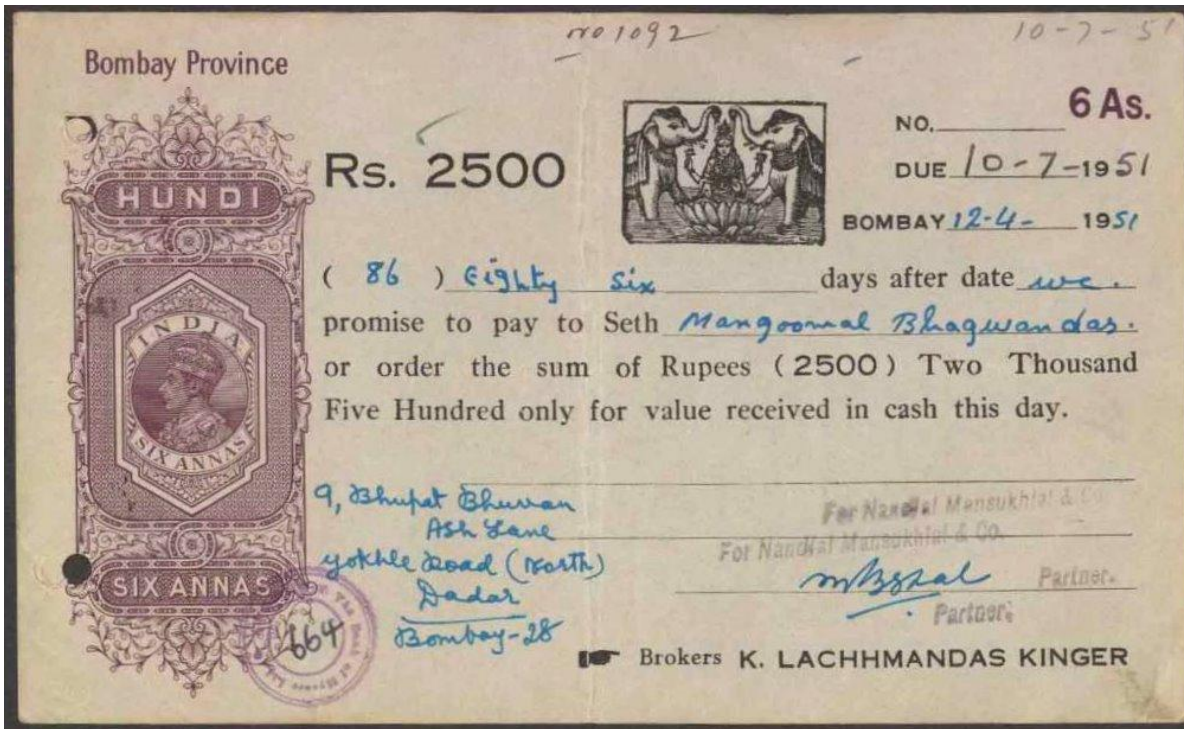 no 1092
10-7-51
Bombay Province
6 As.
HUNDI
INDIA
SIX ANNAS
SIX ANNAS
Rs. 2500
NO.
DUE 10-7-1951
BOMBAY 12-4- 1951
( 86 ) Eighty Six days after date we.
promise to pay to Seth Mangoomal Bhagwandas.
or order the sum of Rupees ( 2500 ) Two Thousand
Five Hundred only for value received in cash this day.
9, Bhupat Bhuvan
Ash Lane
Gokhle Road (North)
Dadar
Bombay-28
For Nandlal Mansukhlal & Co.
For Nandlal Mansukhlal & Co.
Partner.
Partner.
664
The Bank of Mysore Ltd.
Brokers K. LACHHMANDAS KINGER